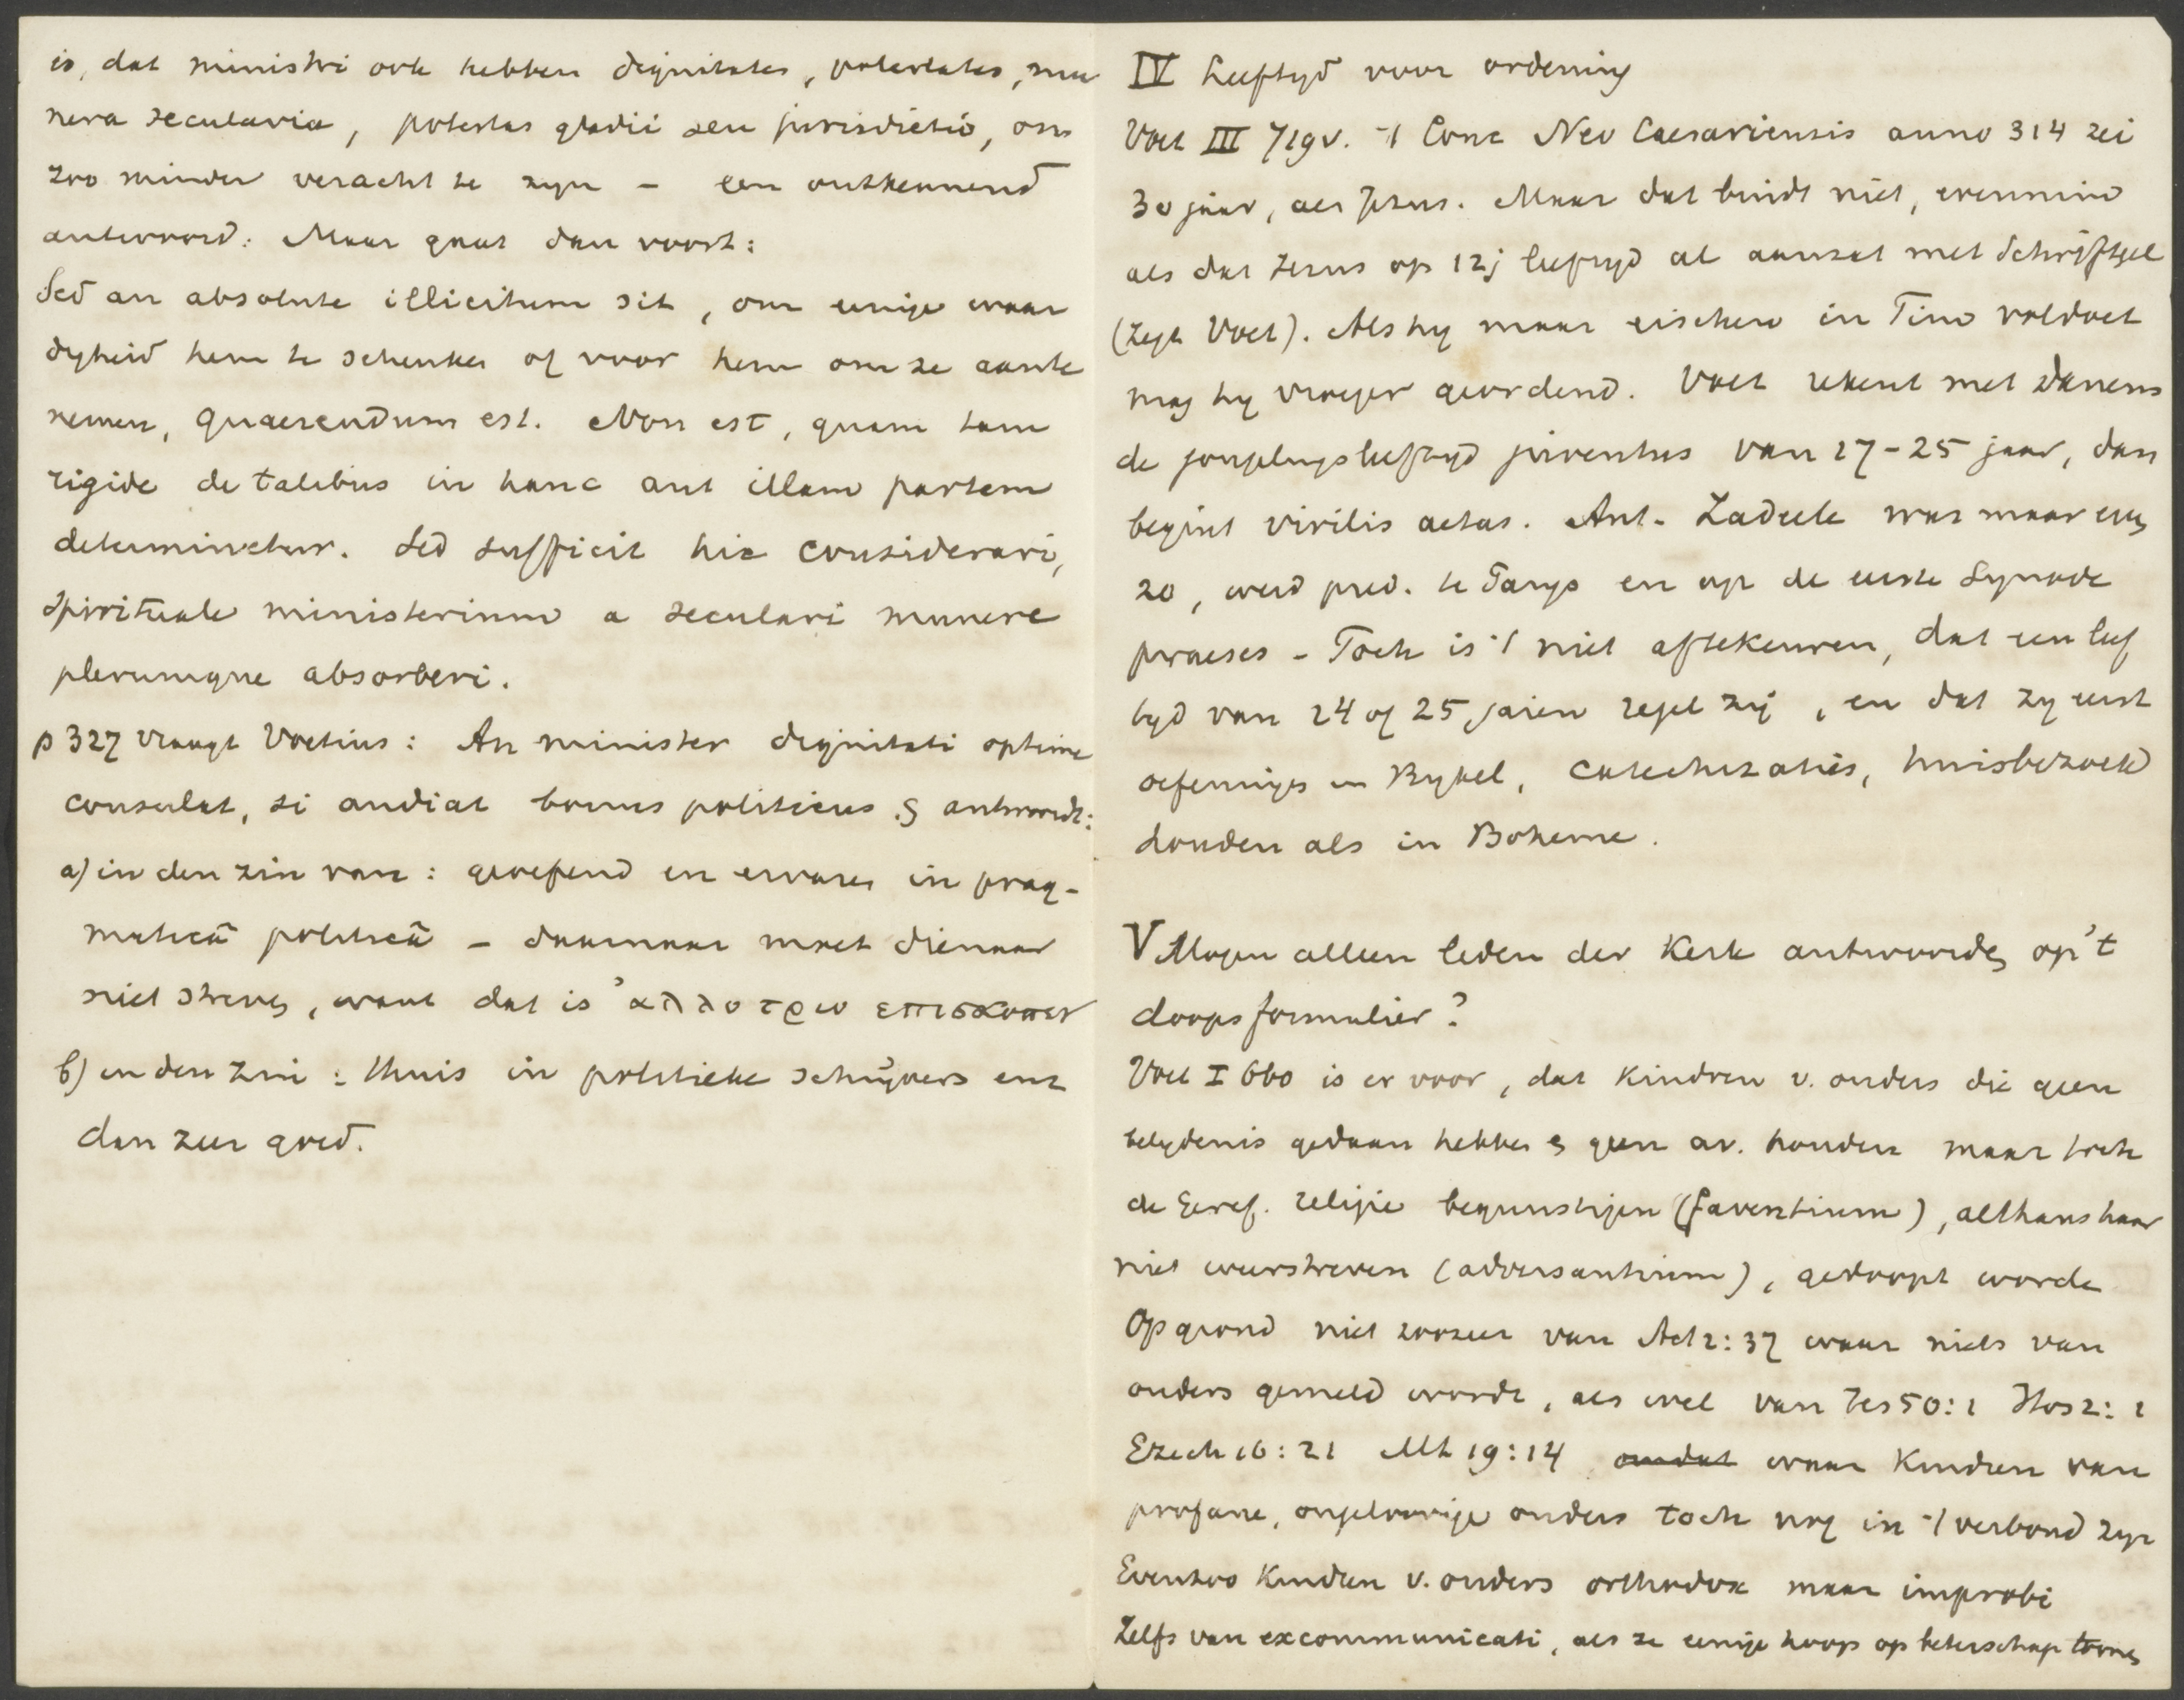 is, dat ministri ook hebben dignitates, potestates, mu
nera secularia, potestas gladii seu jurisdictio, om
zoo minder veracht te zyn – een ontkennend
antwoord. Maar gaat dan voort:
Sed an absolute illicitum sit, om eenige waar
dyheid hem te schenken of voor hem om ze aan te
nemen, quaerendum est. Non est, quam tam
rigide de talibus in hanc aut illam partem
determinetur. Sed sufficit hic considerari,
spirituale ministerium a seculari munere
plerumque absorberi.
p 327 vraagt Voetius: An minister dignitati optime
consulat, si audiat bonus politicus. § antwoordt:
a) in den zin van: geoefend en ervaren in prag-
maticâ politicâ – daarnaar moet dienaar
niet streven, want dat is ἀλλοτριο επισκοπειν
b) in den zin: thuis in politieke schrijvers enz
dan zeer goed.
IV Leeftyd voor ordening
Voet III 719v. 't Conc Neo Caesariensis anno 314 zei
30 jaar, als Jezus. Maar dat bindt niet, evenmin
als dat Jezus op 12j leeftyd al aanzat met Schriftgel
(zegt Voet). Als hy maar eischen in Tim voldoet
mag hy vroeger geordend. Voet rekent met Danens
de jongelingsleeftyd juventus van 17-25 jaar, dan
begint virilis aetas. Ant. Zadeele was maar even
20, werd pred. te Parys en op de eerste Synode
praeses – Toch is 't niet aftekeuren, dat een leef
tyd van 24 of 25 jaren regel zij, en dat zy eerst
oefeningen in Bybel, catechizatiës, huisbezoek
houden als in Boheme.
V Mogen alleen leden der Kerk antwoorden op 't
doopsformulier?
Voet I 660 is er voor, dat kindren v. ouders die geen
belydenis gedaan hebben & geen av. houden maar toch
de Geref. religie begunstigen (faventium), althans haar
niet weerstreven (adversantium), gedoopt worde
Op grond niet zoozeer van Act 2:37 waar niets van
ouders gemeld wordt, als wel van Jes 50:1 Hos 2:1
Ezech 16:21 Mt 19:14 omdat waar kindren van
profane, ongeloovige ouders toch nog in 't verbond zyn
Evenzoo kindren v. ouders orthodox maar improbi
Zelfs van excommunicati, als ze eenige hoop op beterschap toonen